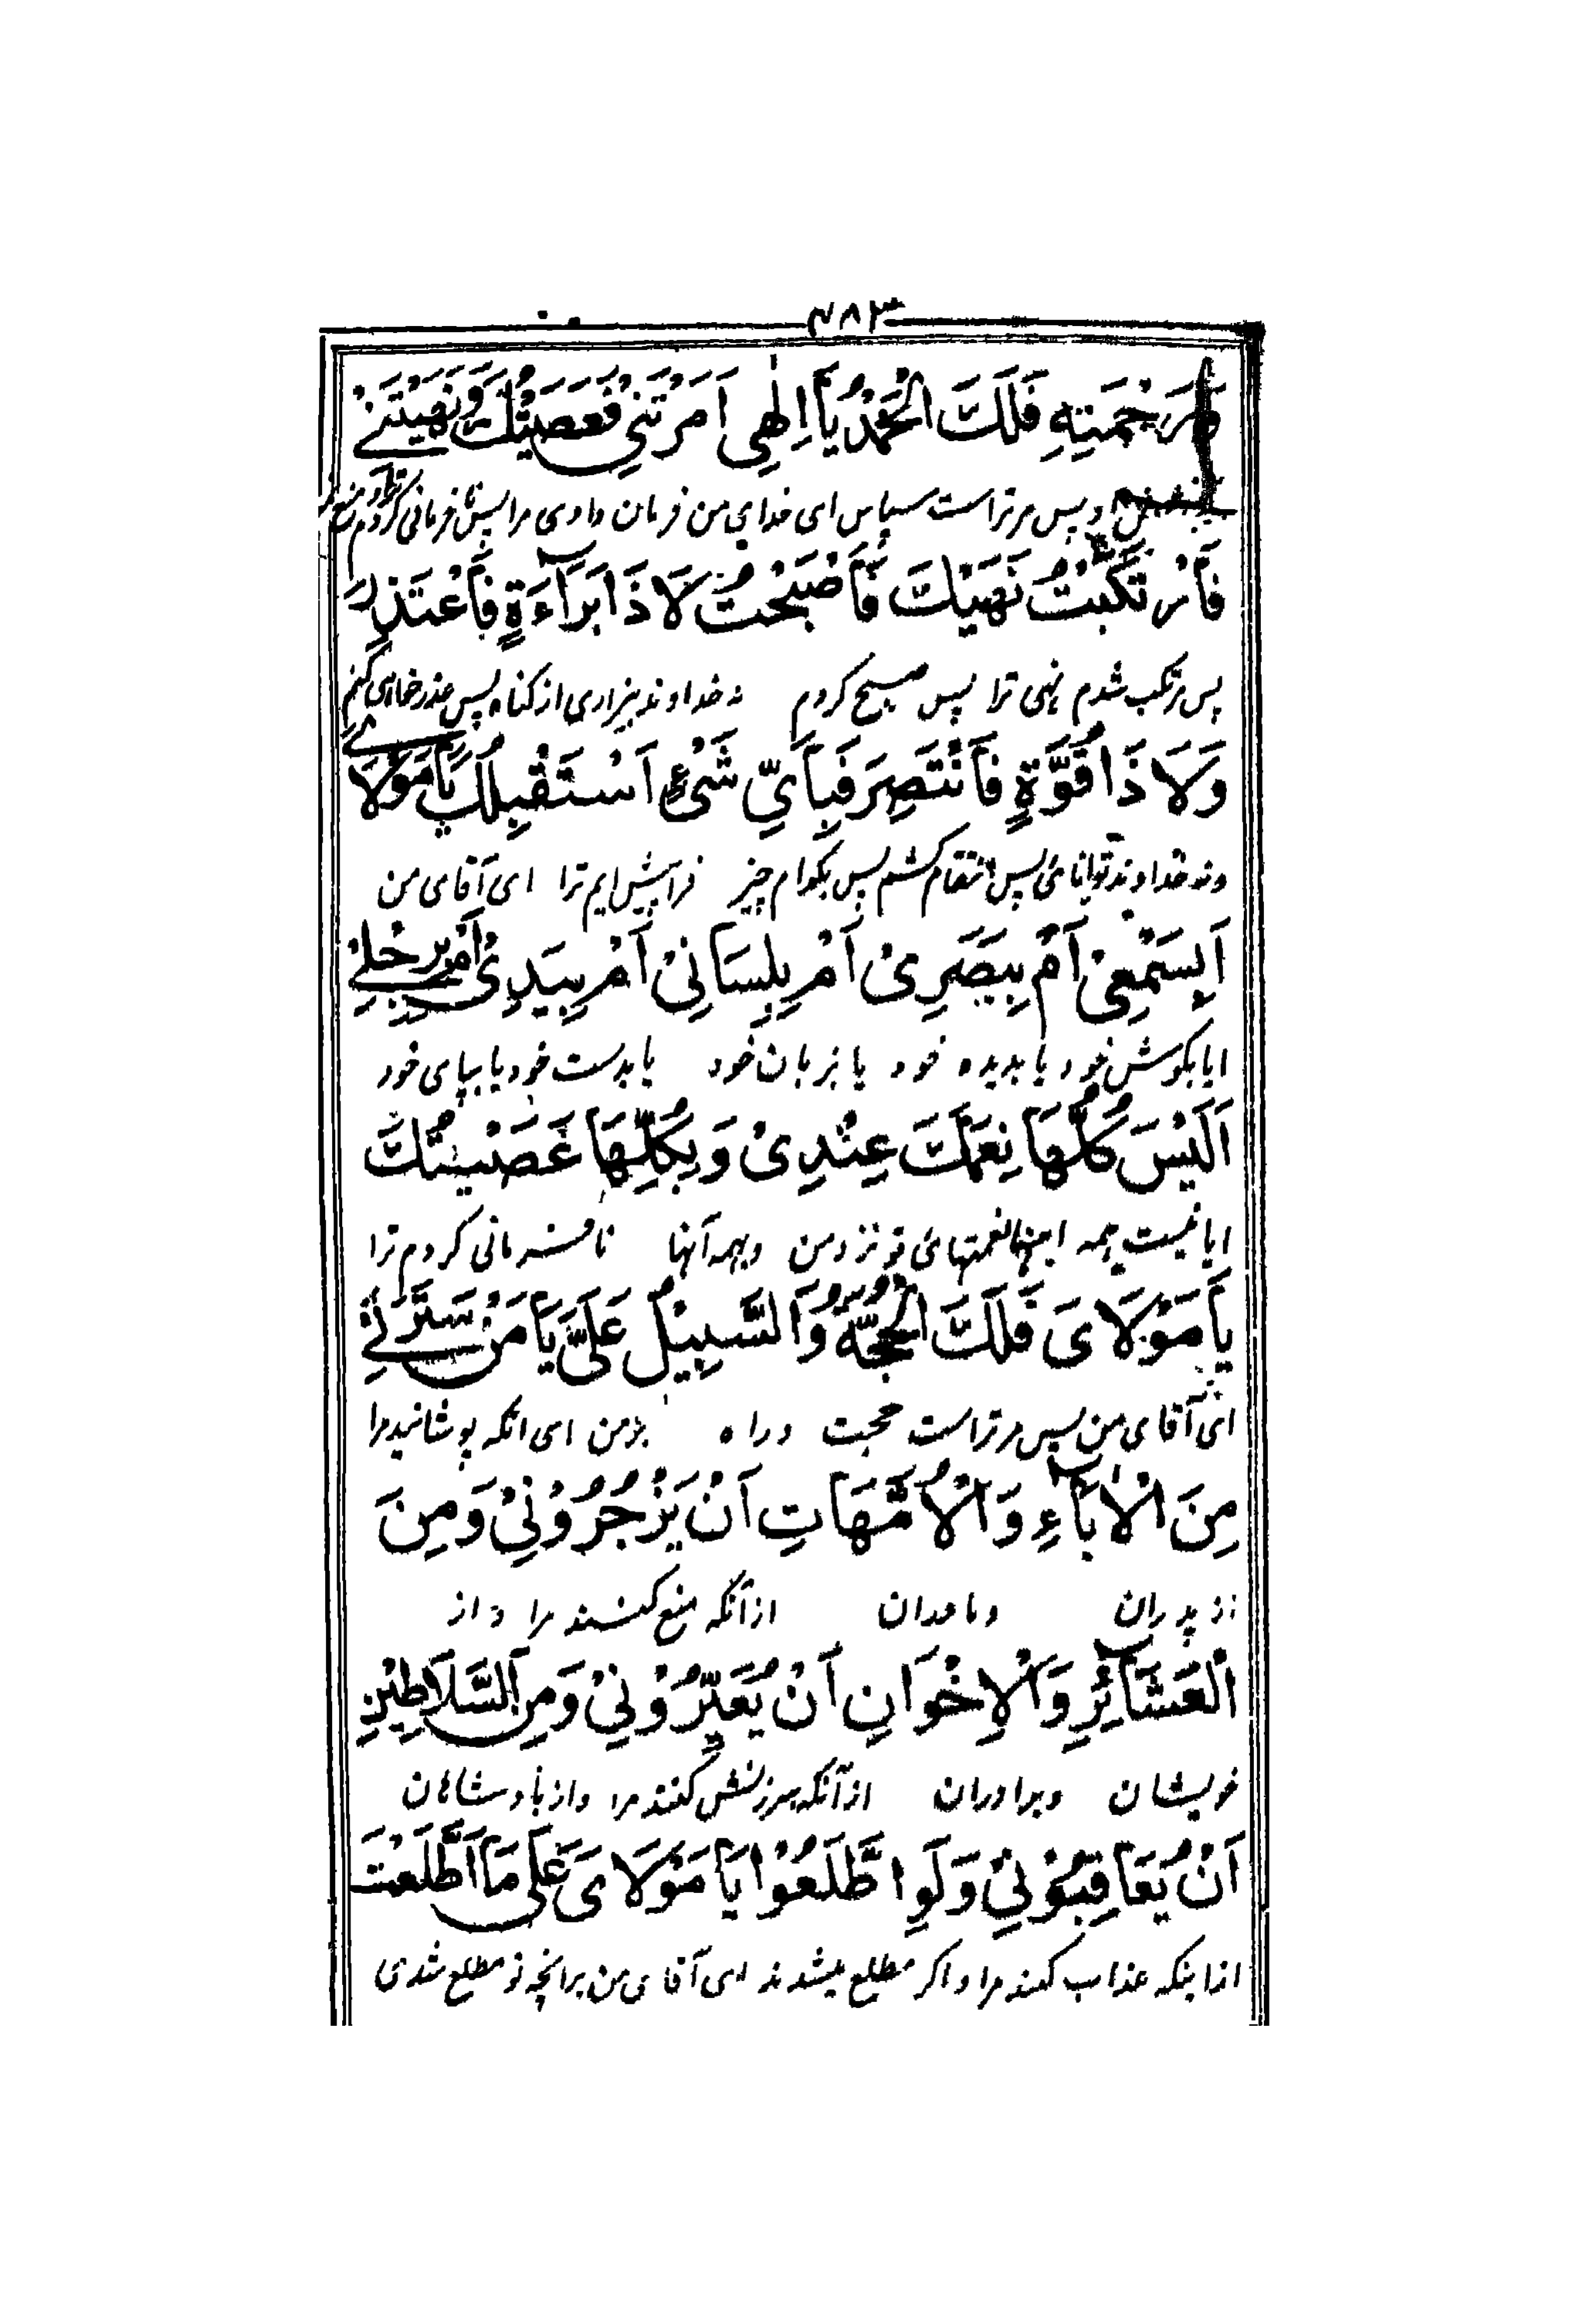 ۳۸۳
بِرَحْمَتِهِ فَلَكَ الْحَمْدُ يَا اِلٰهِي اَمَرْتَنِي فَعَصَيْتُكَ وَنَهَيْتَنِي
و پس مر تراست سپاس ای خدای من فرمان دادی مرا پس نافرمانی کردم
فَارْتَكَبْتُ نَهْيَكَ فَاَصْبَحْتُ لَا ذَا بَرَآءَةٍ فَاَعْتَذِرَ
پس مرتکب شدم نهی ترا پس صبح کردم نه خداوند بیزاری از کناه پس عذرخواهی کنم
وَلَا ذَا قُوَّةٍ فَاَنْتَصِرَ فَبِاَيِّ شَيْءٍ اَسْتَقْبِلُكَ يَا مَوْلَايَ
ونه خداوند توانائی پس انتقام کشم پس بکدام چیز فرا پیش ایم ترا ای آقای من
اَبِسَمْعِيْ اَمْ بِبَصَرِيْ اَمْ بِلِسَانِيْ اَمْ بِيَدِيْ اَمْ بِرِجْلِيْ
ایا بکوش خود یا بدیده خود یا بزبان خود یا بدست خود یا بپای خود
اَلَيْسَ كُلُّهَا نِعَمَكَ عِنْدِيْ وَ بِكُلِّهَا عَصَيْتُكَ
ایا نیست همه اینها نعمتهای تو نزد من و بهمه آنها نافرمانی کردم ترا
يَا مَوْلَايَ فَلَكَ الْحُجَّةُ وَالسَّبِيْلُ عَلَيَّ يَا مَنْ سَتَرَنِيْ
ای آقای من پس مر تراست حجت و راه بر من ای انکه پوشانید مرا
مِنَ الْاٰبَآءِ وَ الْاُمَّهَاتِ اَنْ يَزْجُرُوْنِيْ وَ مِنَ
از پدران و مادران از آنکه منع کنند مرا و از
الْعَشَائِرِ وَ الْاِخْوَانِ اَنْ يُعَيِّرُوْنِيْ وَ مِنَ السَّلَاطِيْنِ
خویشان و برادران از آنکه سرزنش کنند مرا و از پادشاهان
اَنْ يُعَاقِبُوْنِيْ وَ لَوِ اطَّلَعُوْا يَا مَوْلَايَ عَلَى مَا اطَّلَعْتَ
از اینکه عذاب کنند مرا و اکر مطلع میشدند ای آقای من برانچه تو مطلع شدی